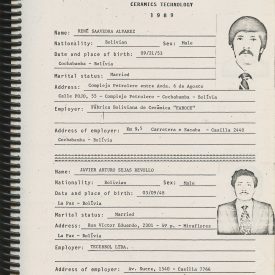 CERAMICS TECHNOLOGY
1989
Name: RENÉ SAAVEDRA ALVAREZ
Nationality: Bolivian Sex: Male
Date and place of birth: 09/21/53
Cochabamba - Bolivia
Marital status: Married
Address: Complejo Petrolero entre Avda. 6 de Agosto
Calle POJO, 55 - Complejo Petrolero - Cochabamba - Bolivia
Employer: Fábrica Boliviana de Cerámica "FABOCE"
Address of employer: Km 9,5 Carretera a Sacaba - Casilla 2448
Cochabamba - Bolivia
Name: JAVIER ARTURO SEJAS REVOLLO
Nationality: Bolivian Sex: Male
Date and place of birth: 03/09/48
La Paz - Bolivia
Marital status: Married
Address: Rua Victor Eduardo, 2001 - 9º p. - Miraflores
La Paz - Bolivia
Employer: TECERSOL LTDA.
Address of employer: Av. Sucre, 1548 - Casilla 3766